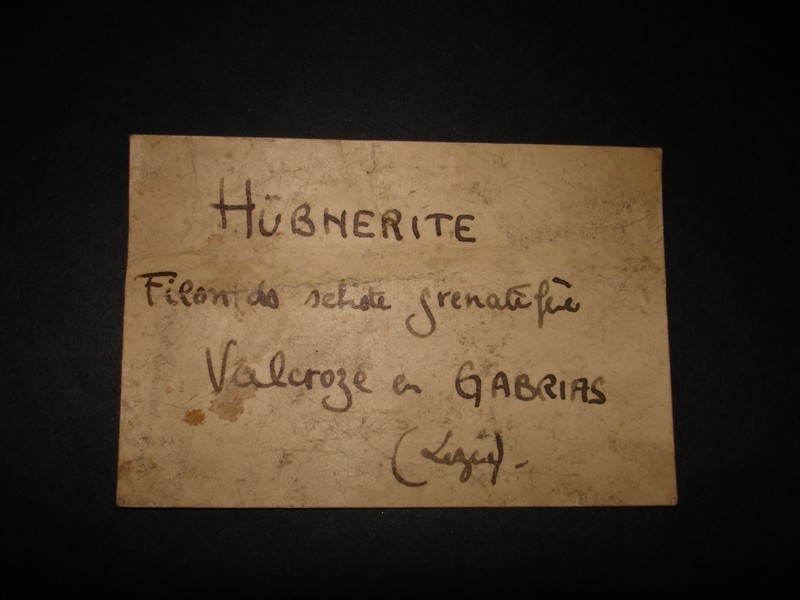 HÜBNERITE
Filon ds schiste grenatifère
Valcroze en GABRIAS
(Lozère).